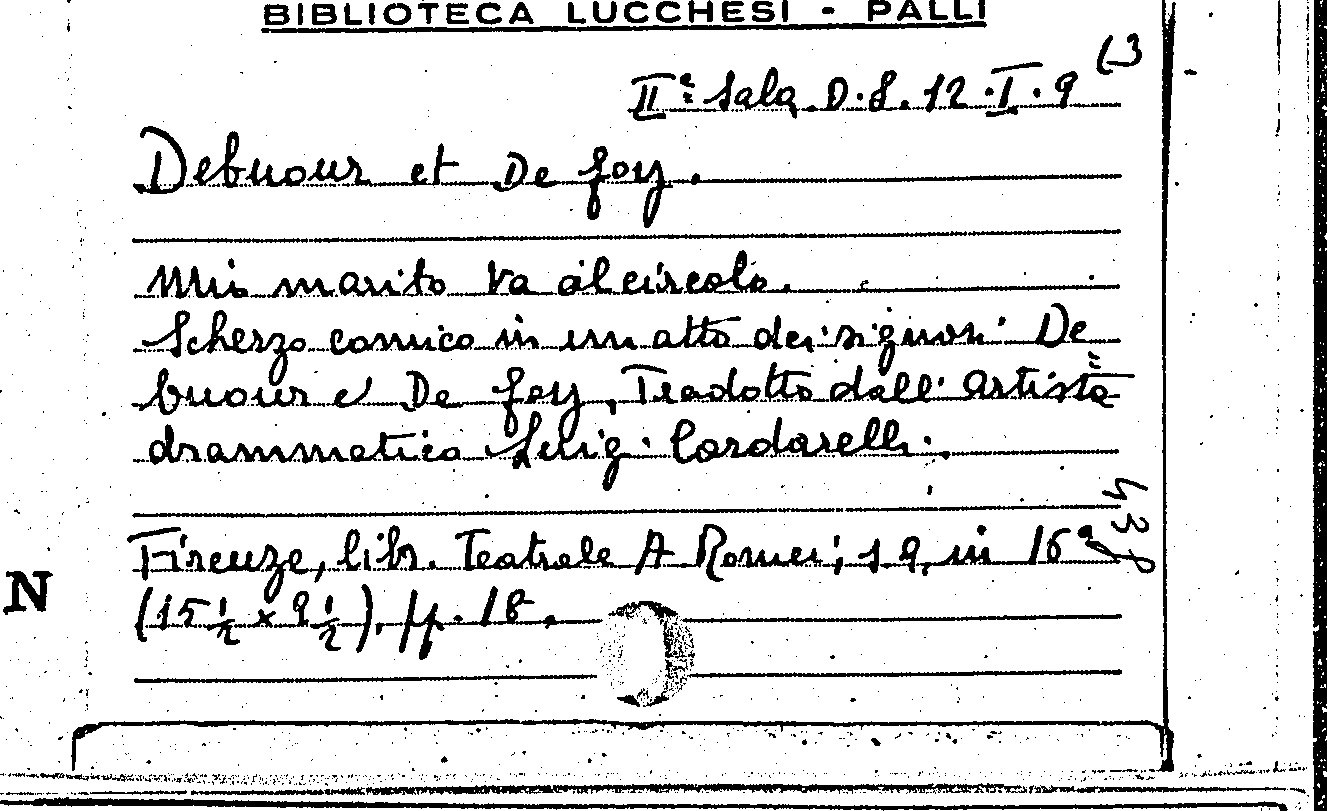 BIBLIOTECA LUCCHESI - PALLI
IIª Sala D.S. 12.I.9 (3
Debuour et De Foy.
Mio marito va al circolo.
Scherzo comico in un atto dei signori De
buour e De Foy, Tradotto dall' artista
drammatico Luig. Cardarelli.
Firenze, libr. Teatrale A Romei; s.a, in 16º
(15 ½ x 9 ½), pp. 18.
N